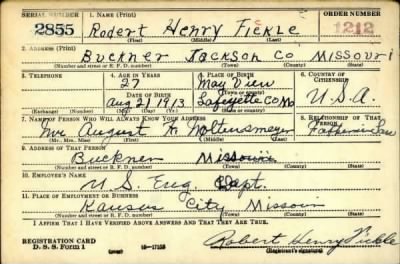 SERIAL NUMBER 1. NAME (Print) ORDER NUMBER
2855 Rodert Henry Fickle 1212
(First) (Middle) (Last)
2. ADDRESS (Print)
Buckner Jackson Co Missouri
(Number and street or R. F. D. number) (Town) (County) (State)
3. TELEPHONE 4. AGE IN YEARS 5. PLACE OF BIRTH 6. COUNTRY OF CITIZENSHIP
27 May View
DATE OF BIRTH (Town or county)
Aug 21 1913 Lafayette Co Mo U.S.A.
(Exchange) (Number) (Mo.) (Day) (Yr.) (State or country)
7. NAME OF PERSON WHO WILL ALWAYS KNOW YOUR ADDRESS 8. RELATIONSHIP OF THAT PERSON
Mr. August H. Father in Law
(Mr., Mrs., Miss) (First) (Middle) (Last)
9. ADDRESS OF THAT PERSON
Buckner Missouri
(Number and street or R. F. D. number) (Town) (County) (State)
10. EMPLOYER'S NAME
U.S. Eng. Dept.
11. PLACE OF EMPLOYMENT OR BUSINESS
Kansas City Missouri
(Number and street or R. F. D. number) (Town) (County) (State)
I AFFIRM THAT I HAVE VERIFIED ABOVE ANSWERS AND THAT THEY ARE TRUE.
REGISTRATION CARD
D. S. S. Form 1 16-17105 Robert Henry Fickle
(Registrant's signature)